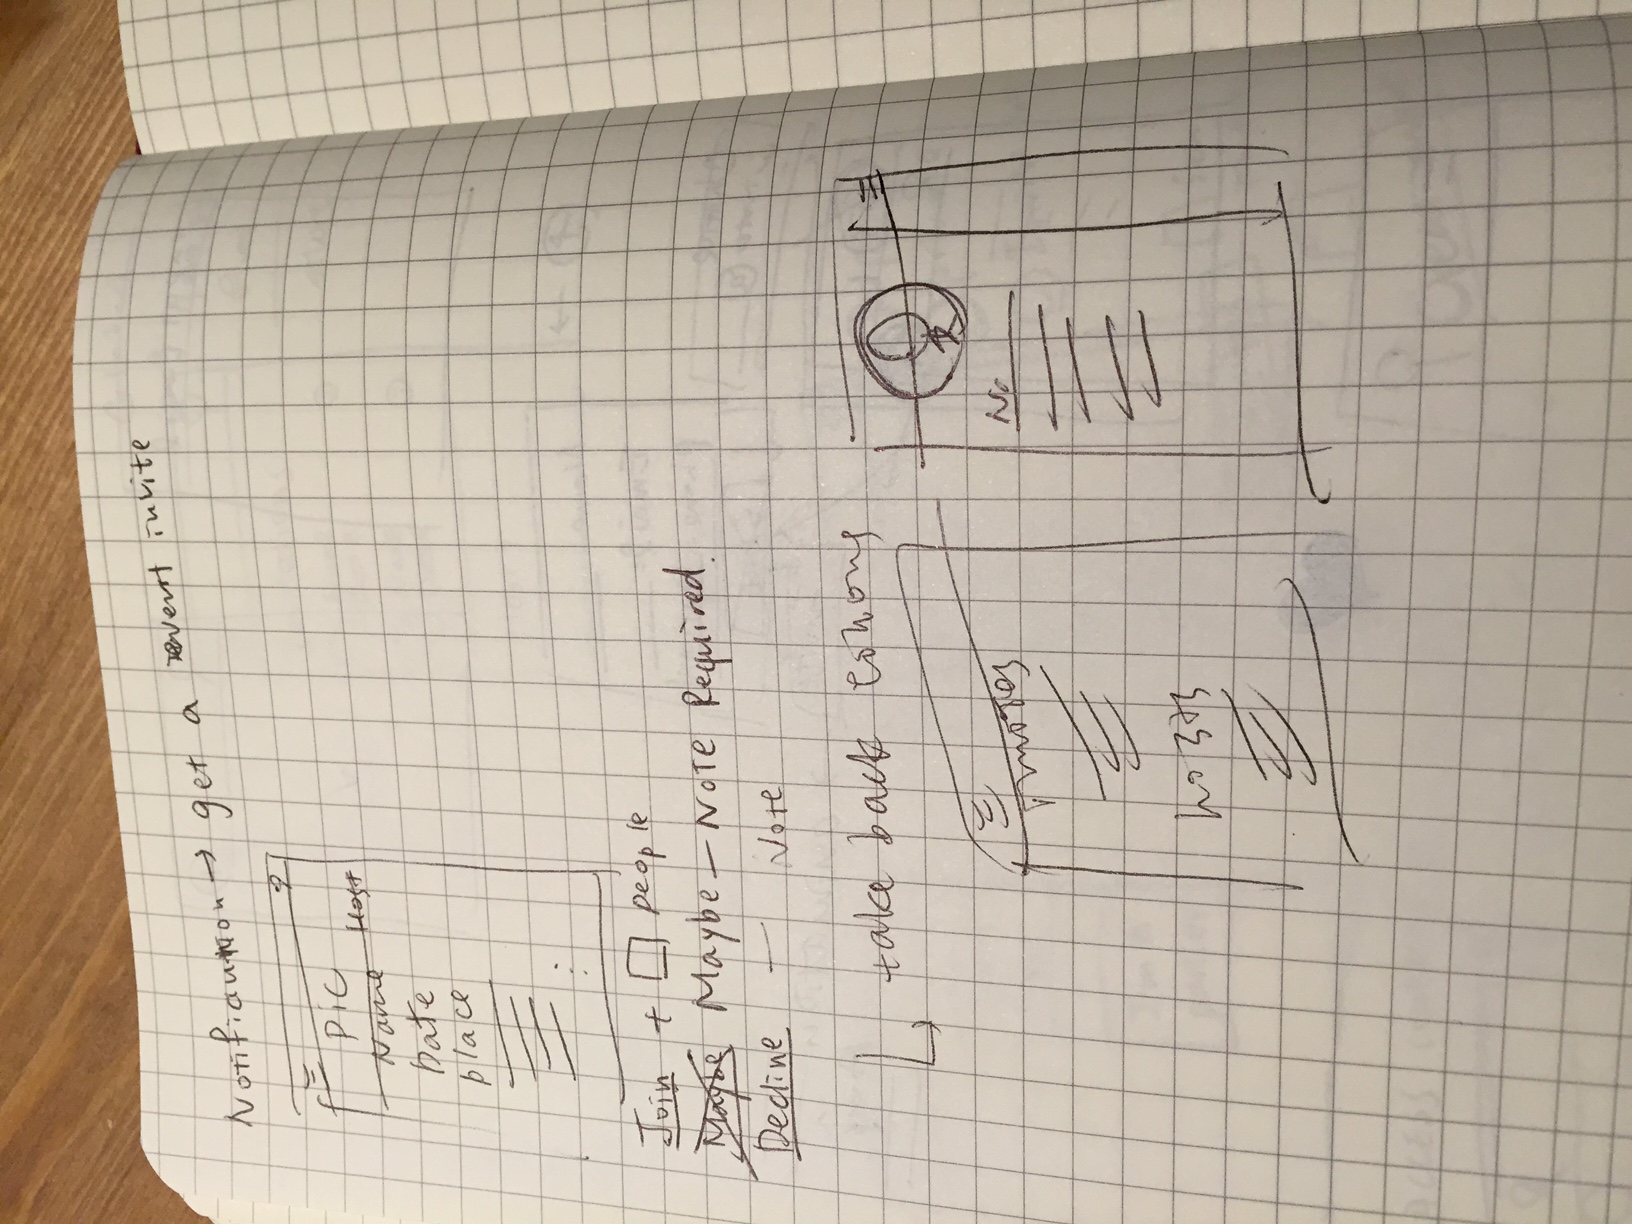 Notification → get a event invite
Pic
Name Host
Date
place
Join + □ people
Maybe Maybe — Note Required.
Decline — Note
take back
hosts